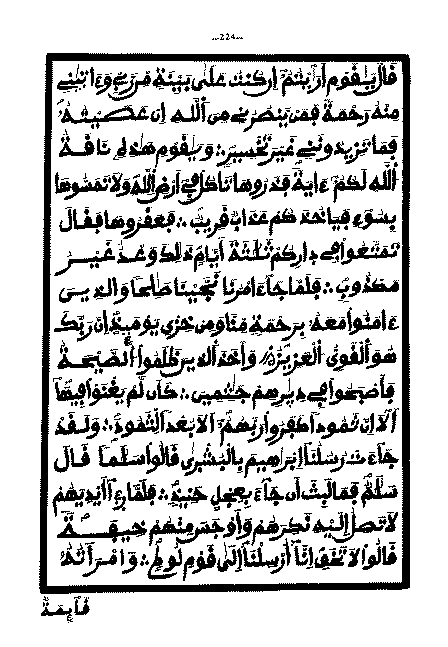 ...224...
قال يقوم أريتم إن كنت على بينة من ربي وءاتيني
منه رحمة فمن ينصرني من الله إن عصيته
فما تزيدونني غير تخسير ∴ ويقوم هذه ناقة
الله لكم ءاية فذروها تأكل في أرض الله ولا تمسوها
بسوء فيأخذكم عذاب قريب ∴ فعقروها فقال
تمتعوا في داركم ثلثة أيام ذلك وعد غير
مكذوب ∴ فلما جاء امرنا نجينا صلحا والذين
ءامنوا معه برحمة منا ومن خزي يومئذ إن ربك
هو القوي العزيز ∴ وأخذ الذين ظلموا الصيحة
فأصبحوا في ديرهم جثمين ∴ كأن لم يغنوا فيها
ألا إن ثمودا كفروا ربهم ألا بعدا لثمود ∴ ولقد
جاءت رسلنا إبرهيم بالبشرى قالوا سلما قال
سلم فما لبث أن جاء بعجل حنيذ ∴ فلما رءا أيديهم
لا تصل إليه نكرهم وأوجس منهم خيفة
قالوا لا تخف إنا أرسلنا إلى قوم لوط ∴ وامرأته
قآئمة